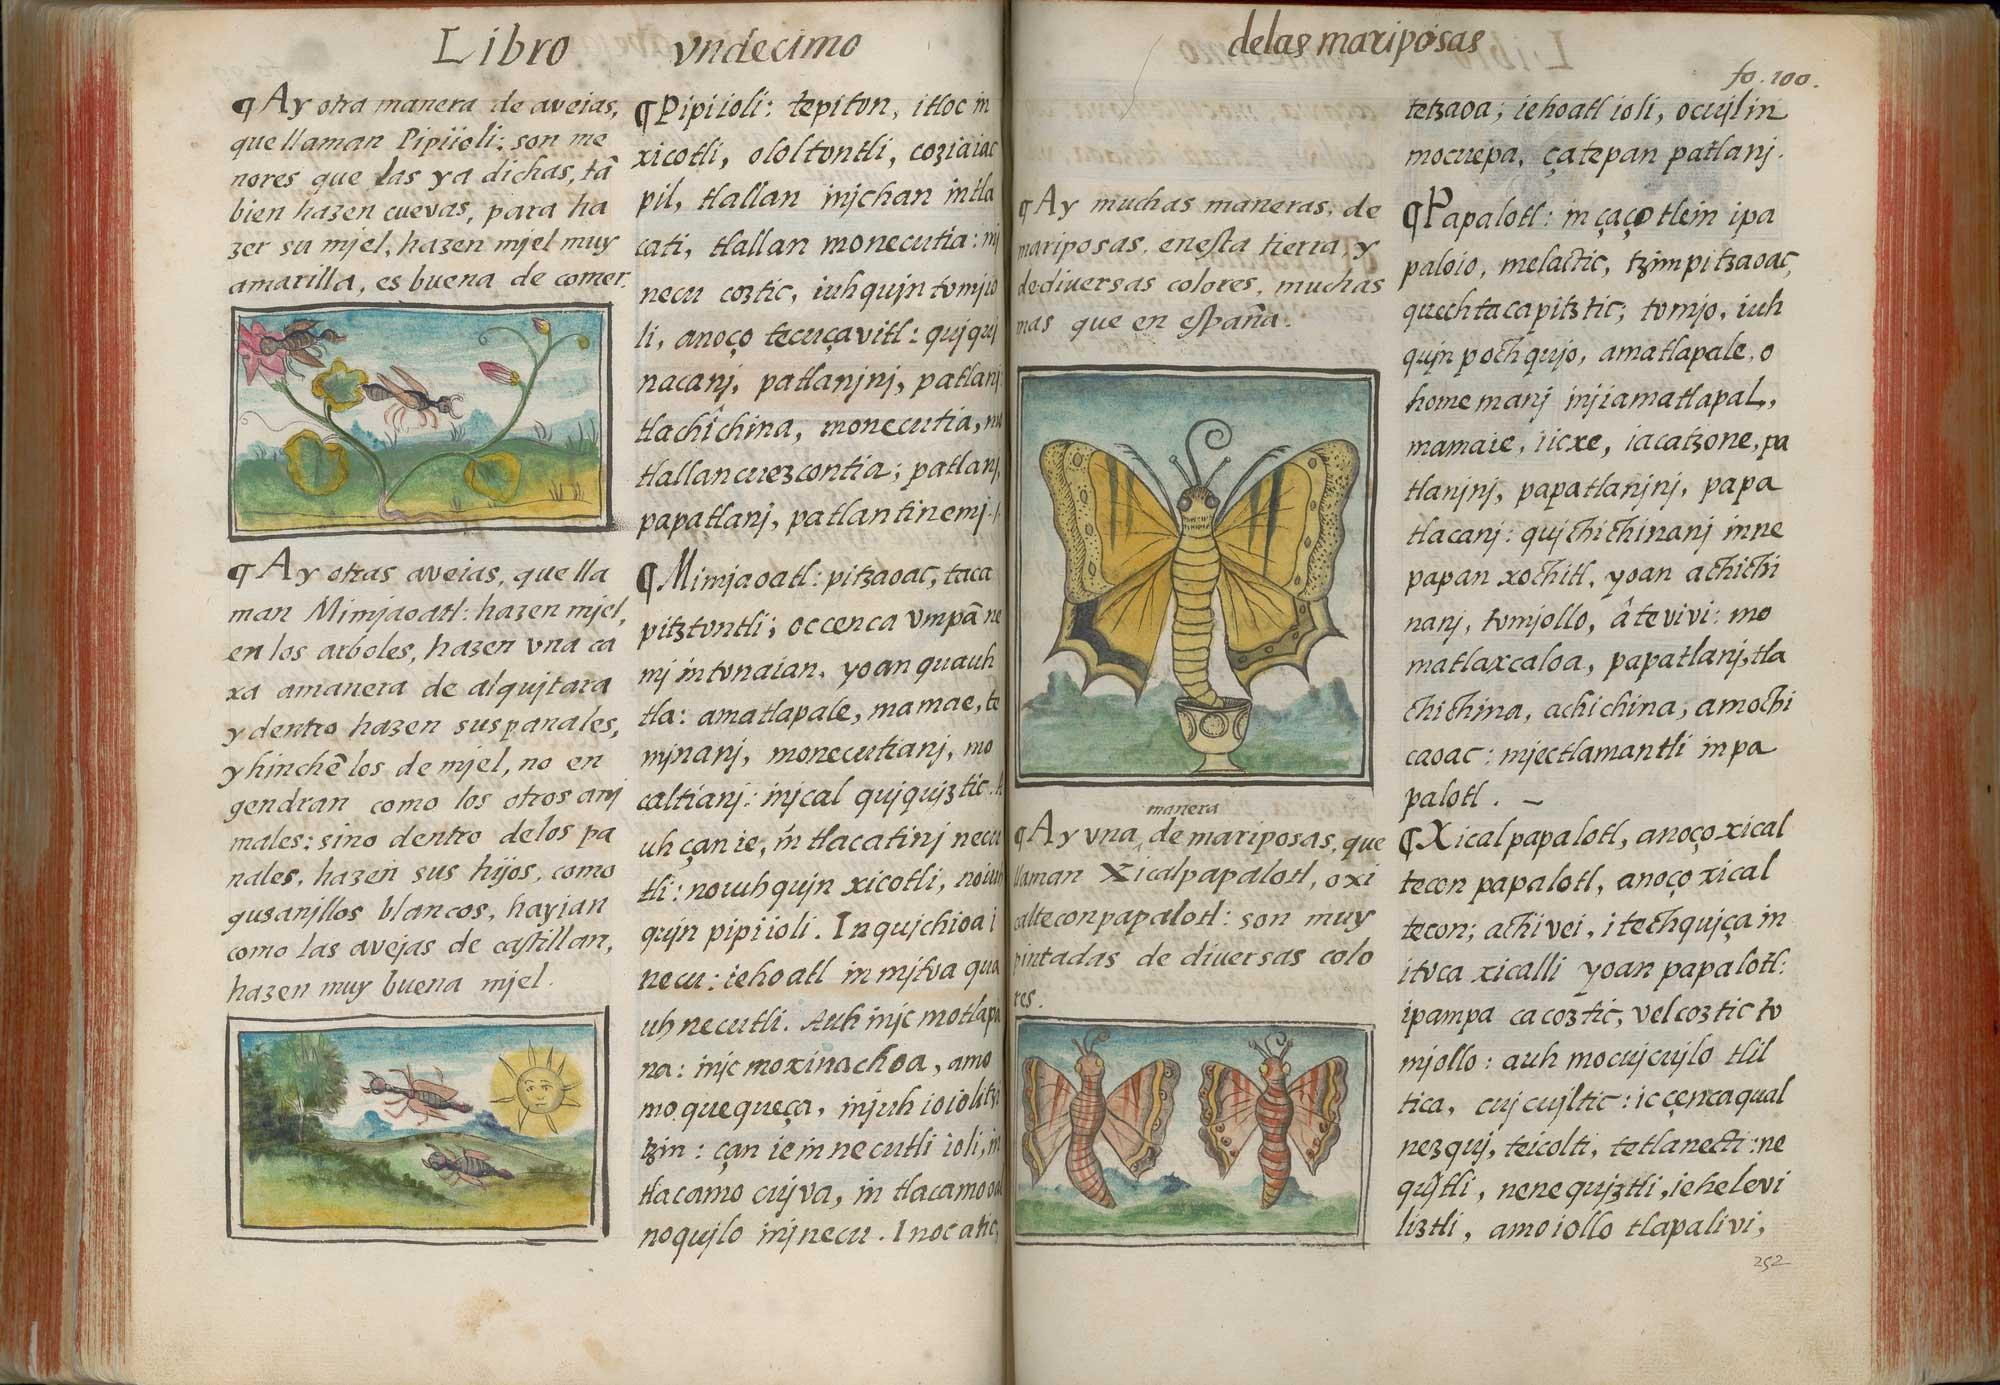 Libro vndecimo
¶ Ay otra manera de aveias,
que llaman Pipiioli: son me
nores que las ya dichas, tã
bien hazen cuevas, para ha
zer su mjel, hazen mjel muy
amarilla, es buena de comer.
¶ Ay otras aveias, que lla
man Mimjaoatl: hazen mjel,
en los arboles, hazen vna ca
xa amanera de alqujtara
y dentro hazen sus panales,
y hinchẽ los de mjel, no en
gendran como los otros anj
males: sino dentro delos pa
nales, hazen sus hijos, como
gusanjllos blancos, havian
como las avejas de castillan,
hazen muy buena mjel.
¶ Pipiioli: tepiton, itloc in
xicotli, ololtontli, coziaiac
pil, tlallan injchan intla
cati, tlallan monecutia: nj
necu coztic, iuhqujn tomjio
li, anoço tecuçavitl: qujquj
nacanj, patlanjnj, patlanj
tlachîchina, monecutia, mo
tlallancuezcontia; patlanj,
papatlanj, patlantinemj.
¶ Mimjaoatl: pitzaoac, taca
pitztontli; occenca vmpã ne
mj intonaian, yoan quauh
tla: amatlapale, mamae, te
mjnanj, monecutianj, mo
caltianj: injcal qujqujztic. A
uh çan ie, in tlacatinj necu
tli: noiuhqujn xicotli, noiuh
qujn pipiioli. Inqujchioa i
necu: iehoatl in mjtoa qua
uhnecutli. Auh injc motlapa
na: injc moxinachoa, amo
mo quequeça, injuh ioiolitzi
tzin: çan ie in necutli ioli, in
tlacamo cujva, in tlacamo oa
noqujlo injnecu. Inoc atic,
delas mariposas
fo. 100.
¶ Ay muchas maneras, de
mariposas, enesta tierra, y
dediuersas colores, muchas
mas que en españa.
manera
¶ Ay vna, de mariposas, que
llaman Xicalpapalotl, o xi
calteconpapalotl: son muy
pintadas de diuersas colo
res.
tetzaoa; iehoatl ioli, ocujlin
mocuepa, çatepan patlanj.
¶ Papalotl: in çaço tlein ipa
paloio, melactic, tzimpitzaoac,
quechtacapitztic; tomjo, iuh
qujn pochqujo, amatlapale, o
home manj injiamatlapal,
mamaie, iicxe, iacatzone, pa
tlanjnj, papatlanjnj, papa
tlacanj: qujchichinanj inne
papan xochitl, yoan achichi
nanj, tomjollo, âtevivi: mo
matlaxcaloa, papatlanj, tla
chichina, achichina, amochi
caoac: mjectlamantli in pa
palotl.
¶ Xicalpapalotl, anoço xical
tecon papalotl, anoço xical
tecon; achi vei, itechqujça in
itoca xicalli yoan papalotl:
ipampa ca coztic, vel coztic to
mjollo: auh mocujcujlo tlil
tica, cujcujltic: ic çenca qual
nezquj, teicolti, tetlanecti: ne
qujtli, nenequjztli, iehelevi
liztli, amo iollo tlapalivi,
252